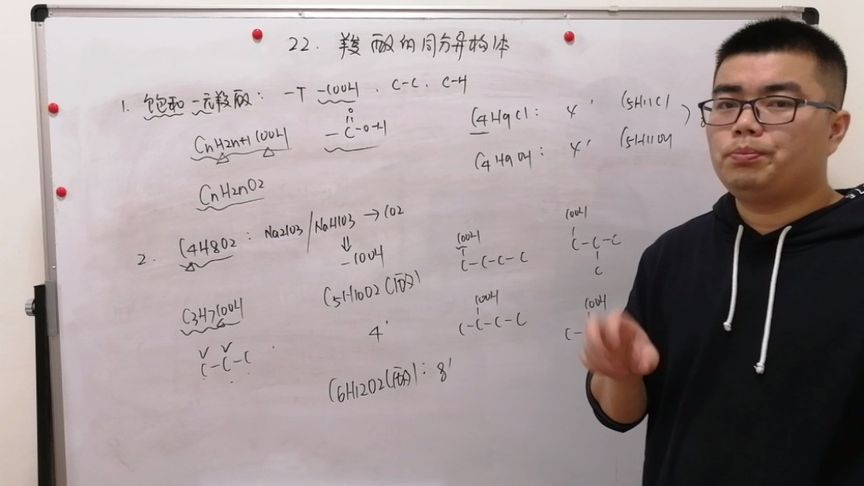 22. 羧酸的同分异构体
1. 饱和一元羧酸: 一个 -COOH . C-C . C-H
CnH2n+1COOH
O
-C-O-H
CnH2nO2
C4H9Cl: 4' C5H11Cl
C4H9OH: 4' C5H11OH
8
2. C4H8O2: Na2CO3/NaHCO3 → CO2
⇓
-COOH
C3H7COOH
C-C-C
C5H10O2(酸)
4'
C6H12O2(酸): 8'
COOH
C-C-C-C
COOH
C-C-C
C
COOH
C-C-C-C
COOH
C-